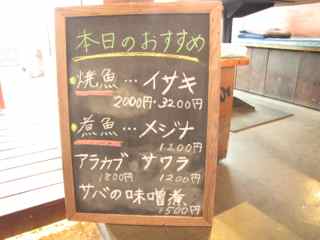 本日のおすすめ
・焼魚…イサキ
2000円・3200円
・煮魚…メジナ
1200円
アラカブ サワラ
1800円 1200円
サバの味噌煮
1500円